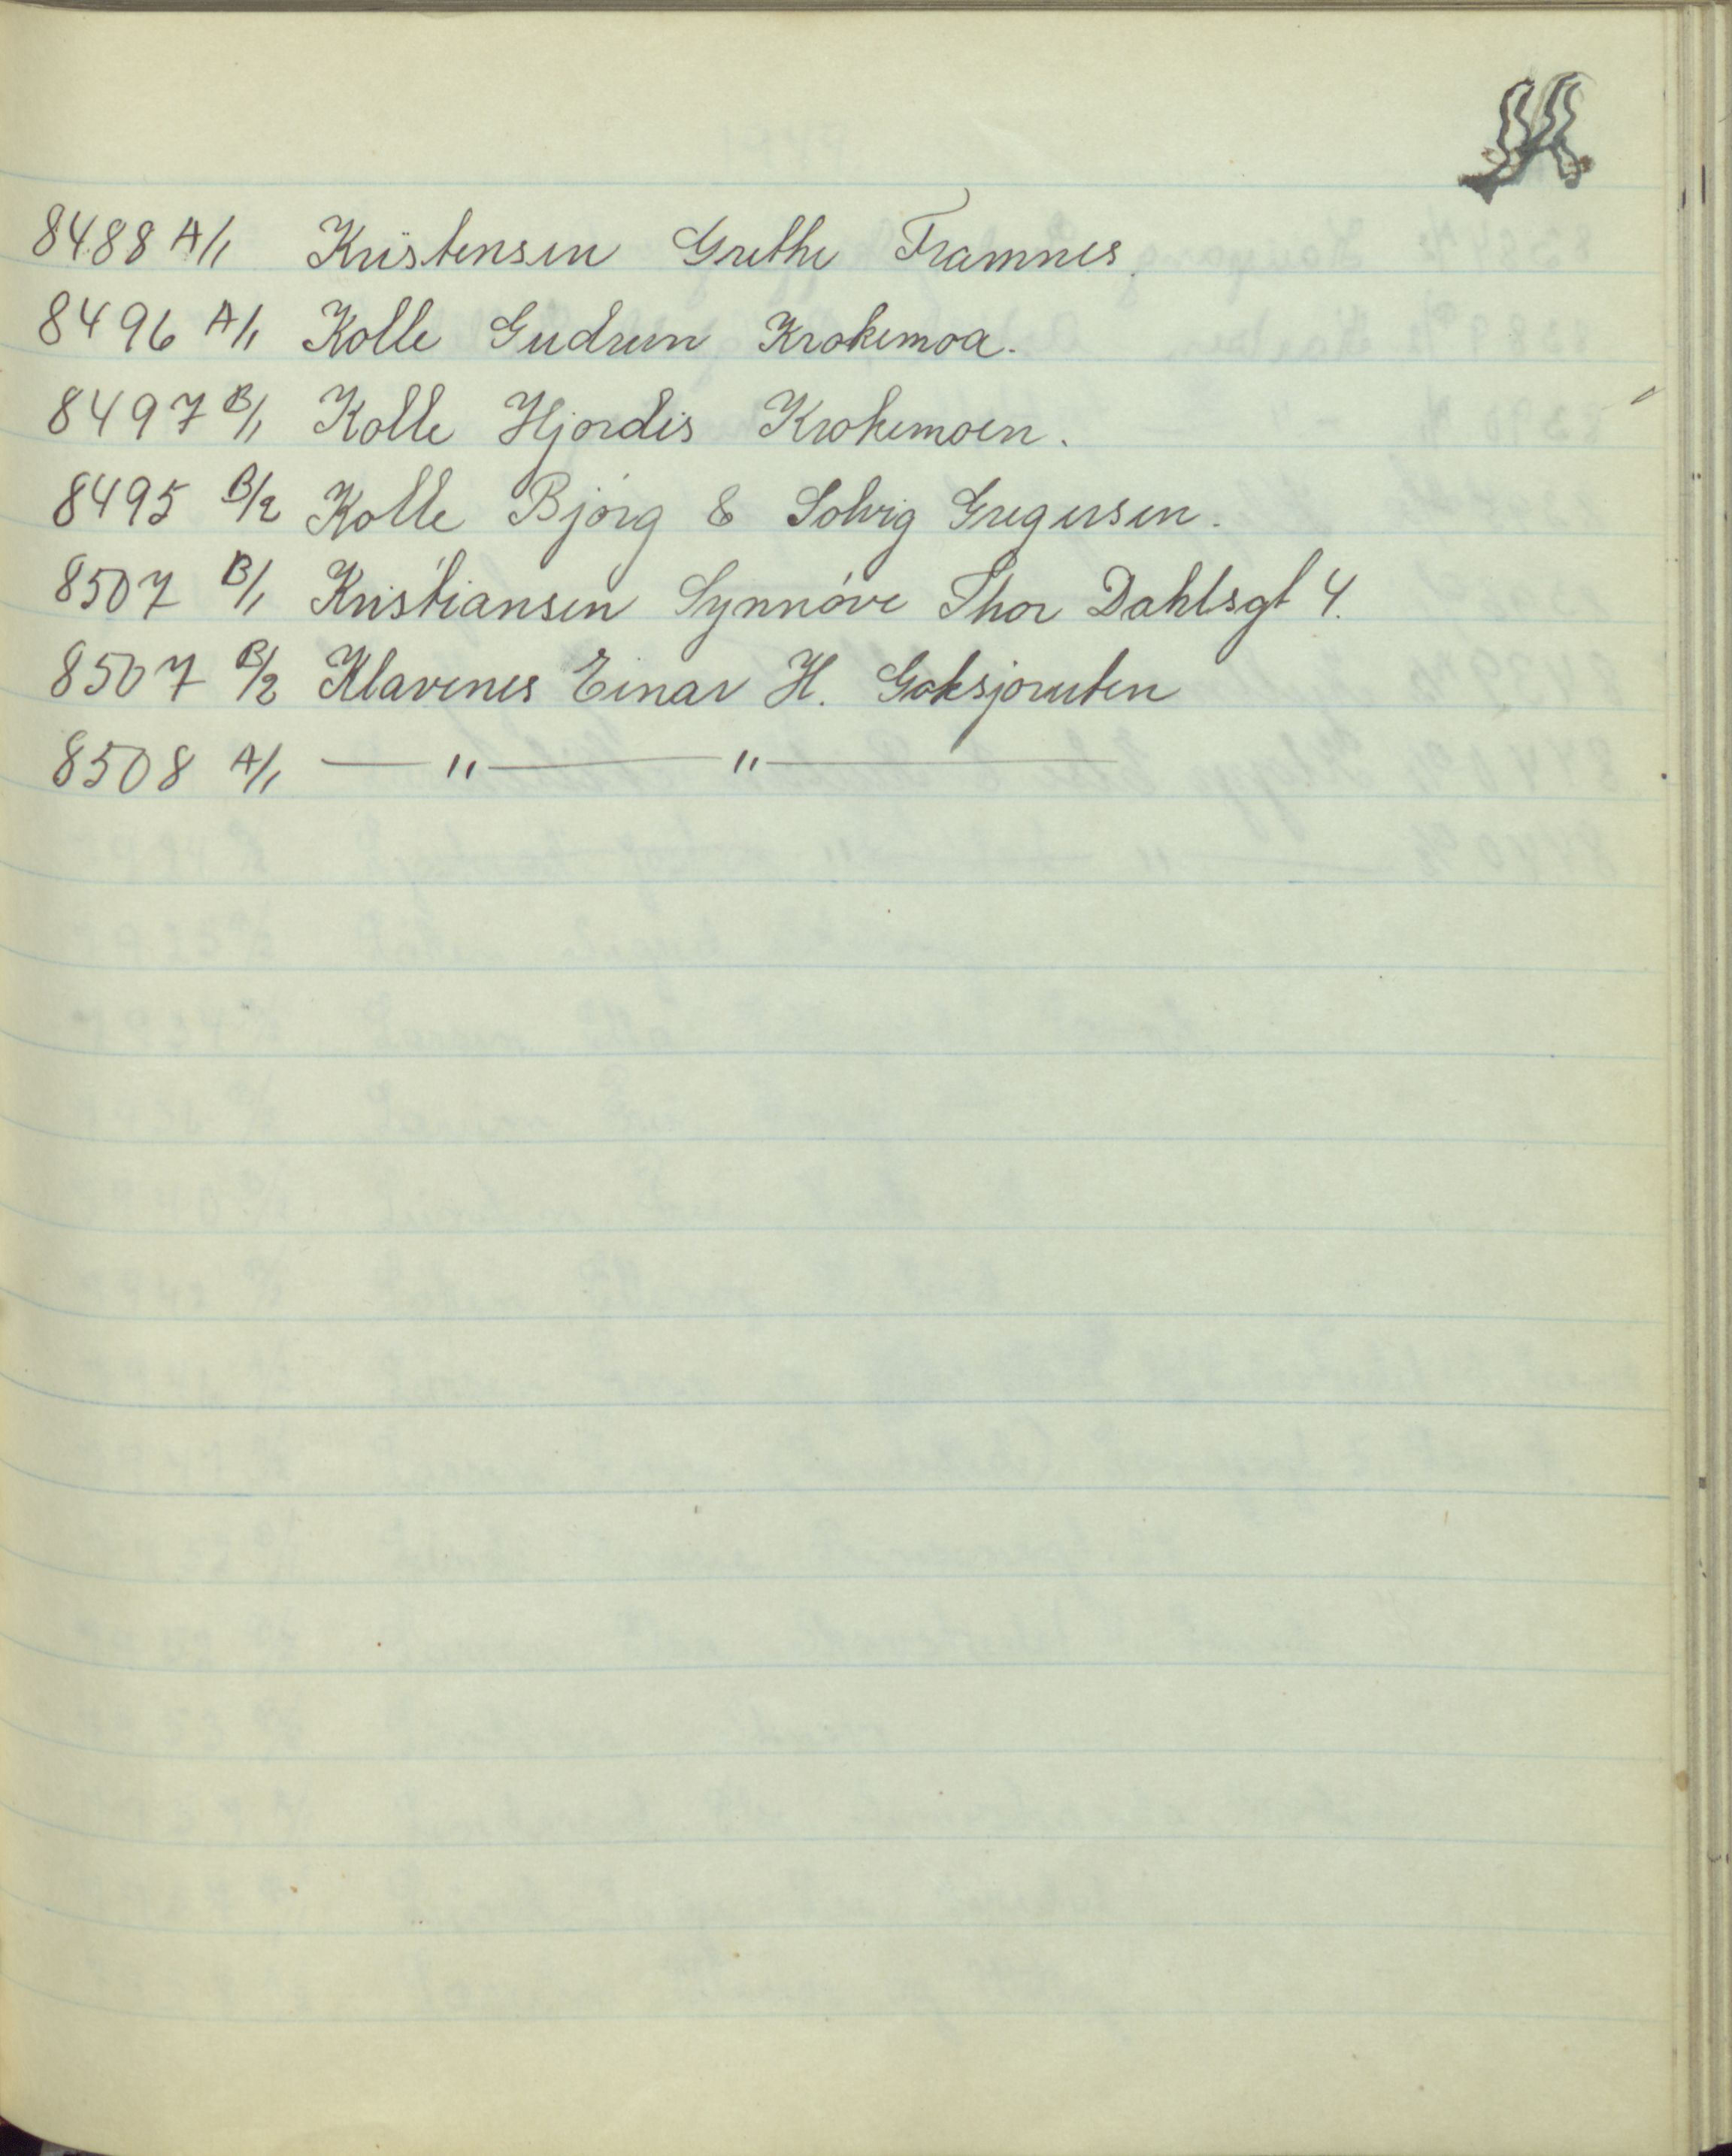 K
8488 A/1 Kristensen Grethe Framnes.
8496 A/1 Kolle Gudrun Krokemoa.
8497 B/1 Kolle Hjordis Krokemoen.
8495 B/2 Kolle Bjørg & Solvig Gregersen.
8507 B/1 Kristiansen Synnøve Thor Dahlsgt 4.
8507 B/2 Klavenes Einar H. Goksjøruten
8508 A/1 — " — " —